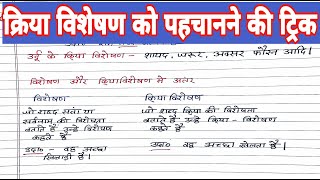 क्रिया विशेषण को पहचानने की ट्रिक
उर्दू के क्रिया विशेषण - शायद, जरूर, अक्सर फौरन आदि।
विशेषण और क्रियाविशेषण में अन्तर
विशेषण
क्रिया विशेषण
जो शब्द संज्ञा या
सर्वनाम की विशेषता
बताते हैं उन्हें विशेषण
कहते हैं
जो शब्द क्रिया की विशेषता
बताते हैं उन्हें क्रिया - विशेषण
कहते हैं
उदा० - वह अच्छा
खिलाड़ी है।
उदा० वह अच्छा खेलता है।